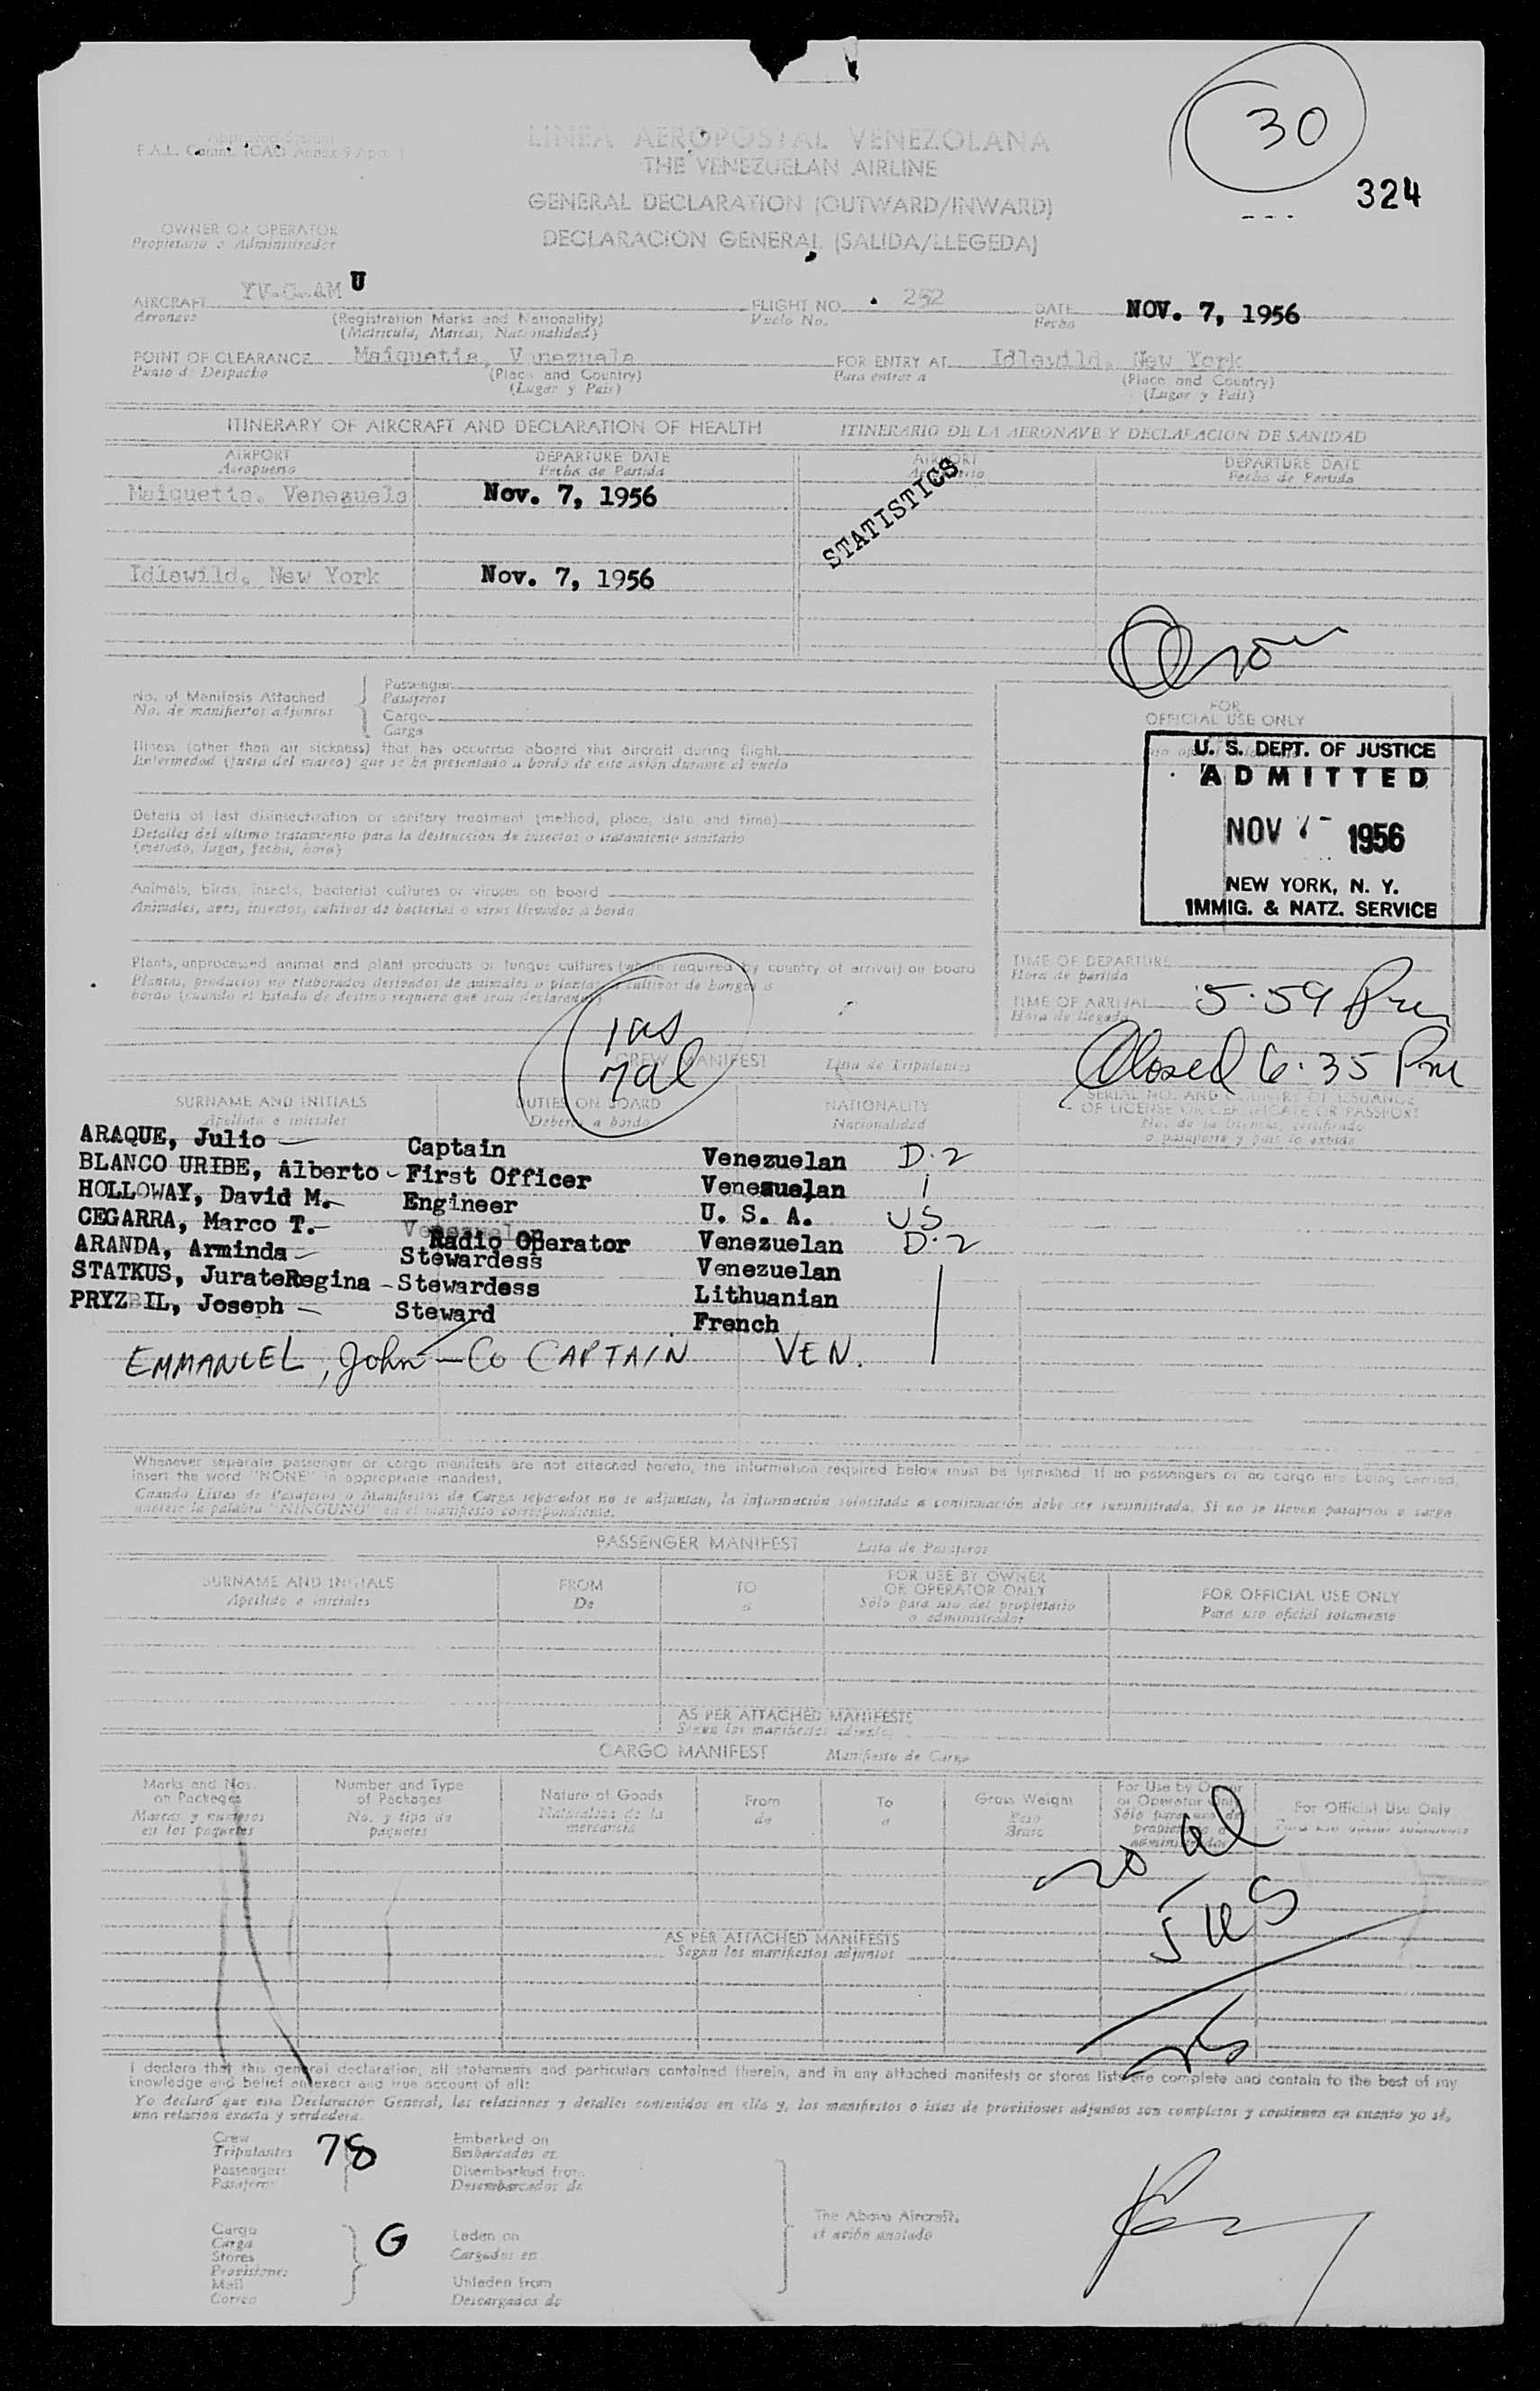 30
324
Approved System
F.A.L. Comm. ICAO Annex 9 App. 1
LINEA AEROPOSTAL VENEZOLANA
THE VENEZUELAN AIRLINE
GENERAL DECLARATION (OUTWARD/INWARD)
DECLARACION GENERAL (SALIDA/LLEGEDA)
OWNER OR OPERATOR
Propietario o Administrador
AIRCRAFT YV-C-AM U FLIGHT NO. 252 DATE NOV. 7, 1956
Aeronave (Registration Marks and Nationality) Vuelo No. Fecha
(Matricula, Marcas, Nacionalidad)
POINT OF CLEARANCE Maiquetia, Venezuela FOR ENTRY AT Idlewild, New York
Punto de Despacho (Place and Country) Para entrar a (Place and Country)
(Lugar y Pais) (Lugar y Pais)
ITINERARY OF AIRCRAFT AND DECLARATION OF HEALTH ITINERARIO DE LA AERONAVE Y DECLARACION DE SANIDAD
AIRPORT DEPARTURE DATE AIRPORT DEPARTURE DATE
Aeropuerto Fecha de Partida Fecha de Partida
Maiquetia, Venezuela Nov. 7, 1956
STATISTICS
Idlewild, New York Nov. 7, 1956
No. of Manifests Attached
No. de manifiestos adjuntos
Passenger
Pasajeros
Cargo
Carga
FOR
OFFICIAL USE ONLY
Illness (other than air sickness) that has occurred aboard this aircraft during flight
Enfermedad (fuera del mareo) que se ha presentado a bordo de este avión durante el vuelo
U. S. DEPT. OF JUSTICE
ADMITTED
NOV 7 - 1956
NEW YORK, N. Y.
IMMIG. & NATZ. SERVICE
Details of last disinsectization or sanitary treatment (method, place, date and time)
Detalles del ultimo tratamiento para la destruccion de insectos o tratamiento sanitario
(metodo, lugar, fecha, hora)
Animals, birds, insects, bacterial cultures or viruses on board
Animales, aves, insectos, cultivos de bacterias o virus llevados a bordo
Plants, unprocessed animal and plant products or fungus cultures (where required by country of arrival) on board
Plantas, productos no elaborados derivados de animales o plantas o cultivos de hongos a
bordo (cuando el Estado de destino requiere que sean declarados)
TIME OF DEPARTURE
Hora de partida
TIME OF ARRIVAL 5:59 Pm
Hora de llegada
Closed 6:35 Pm
CREW MANIFEST Lista de Tripulantes
SURNAME AND INITIALS DUTIES ON BOARD NATIONALITY SERIAL NO. AND COUNTRY OF ISSUANCE
OF LICENSE OR CERTIFICATE OR PASSPORT
Apellido e iniciales Deberes a bordo Nacionalidad No. de la licencia, certificado
o pasaporte y pais lo exhide
ARAQUE, Julio — Captain Venezuelan D-2
BLANCO URIBE, Alberto - First Officer Venezuelan
HOLLOWAY, David M.- Engineer U. S. A. US
CEGARRA, Marco T.- Radio Operator Venezuelan D-2
ARANDA, Arminda - Stewardess Venezuelan
STATKUS, JurateRegina - Stewardess Lithuanian
PRYZBIL, Joseph — Steward French
EMMANUEL, John — Co CAPTAIN VEN.
Whenever separate passenger or cargo manifests are not attached hereto, the information required below must be furnished. If no passengers or no cargo are being carried,
insert the word "NONE" in appropriate manifest.
Cuando Listas de Pasajeros o Manifiestos de Carga separados no se adjuntan, la información solicitada a continuación debe ser suministrada. Si no se llevan pasajeros o carga
anotese la palabra "NINGUNO" en el manifiesto correspondiente.
PASSENGER MANIFEST Lista de Pasajeros
SURNAME AND INITIALS FROM TO FOR USE BY OWNER
OR OPERATOR ONLY FOR OFFICIAL USE ONLY
Apellido e iniciales De a Sólo para uso del propietario
o administrador Para uso oficial solamente
AS PER ATTACHED MANIFESTS
Segun los manifiestos adjuntos
CARGO MANIFEST Manifiesto de Carga
Marks and Nos.
on Packages Number and Type
of Packages Nature of Goods From To Gross Weight For Use by Owner
or Operator Only For Official Use Only
Marcas y numeros
en los paquetes No. y tipo de
paquetes Naturaleza de la
mercancia de a Peso
Bruto Sólo para uso del
propietario o
administrador Para uso oficial solamente
AS PER ATTACHED MANIFESTS
Segun los manifiestos adjuntos
I declare that this general declaration, all statements and particulars contained therein, and in any attached manifests or stores lists are complete and contain to the best of my
knowledge and belief an exact and true account of all:
Yo declaró que esta Declaración General, las relaciones y detalles contenidos en ella y, los manifiestos o listas de provisiones adjuntos son completos y contienen en cuanto yo sé,
una relación exacta y verdadera.
Crew
Tripulantes
Passengers
Pasajeros
78
Embarked on
Embarcados en
Disembarked from
Desembarcados de
Cargo
Carga
Stores
Provisiones
Mail
Correo
G
Laden on
Cargados en
Unladen from
Descargados de
The Above Aircraft,
el avión anotado